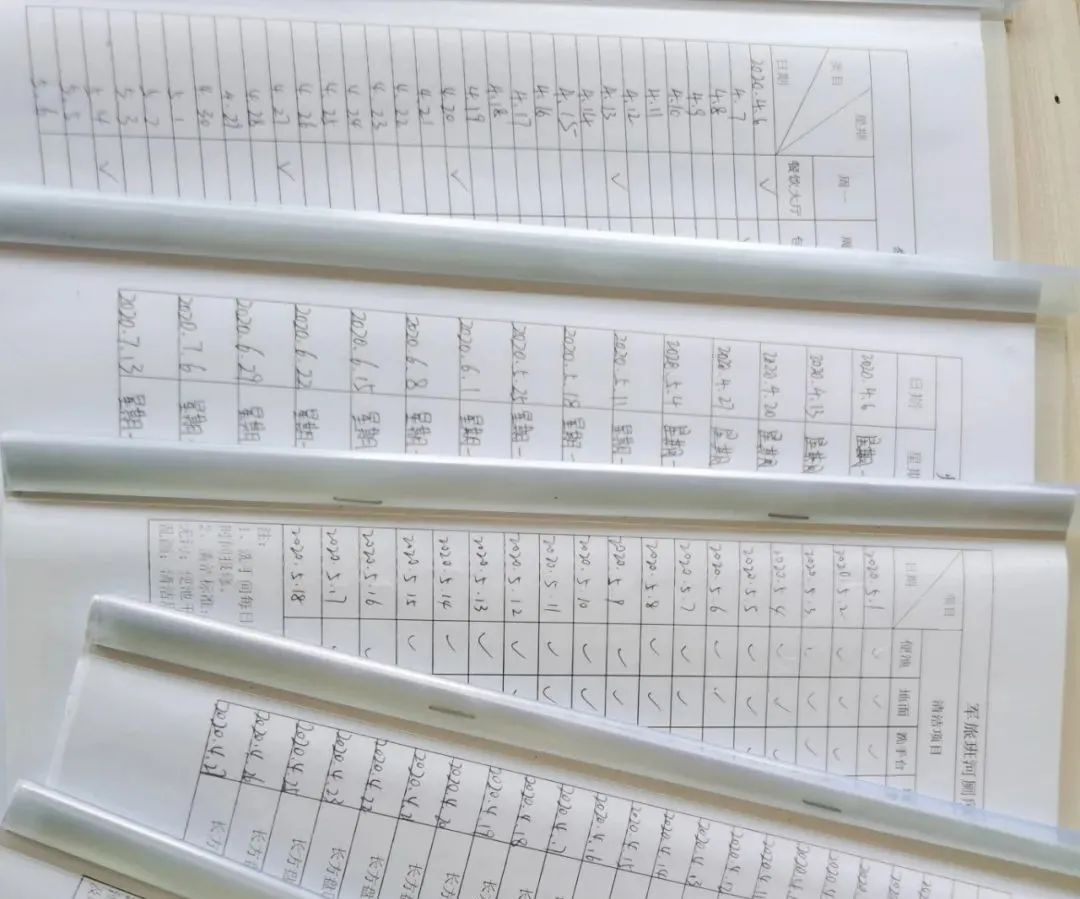 类目 星期 日期 周一 餐饮大厅
2020.4.6 ✓
4.7
4.8
4.9
4.10
4.11
4.12
4.13 ✓
4.14
4.15
4.16
4.17
4.18
4.19
4.20 ✓
4.21
4.22
4.23
4.24
4.25
4.26
4.27 ✓
4.28
4.29
4.30
5.1
5.2
5.3
5.4 ✓
5.5
5.6
日期 星期
2020.4.6 星期一
2020.4.13 星期
2020.4.20 星期
2020.4.27 星期
2020.5.4 星期一
2020.5.11 星期一
2020.5.18 星期一
2020.5.25 星期一
2020.6.1 星期一
2020.6.8 星期
2020.6.15 星期
2020.6.22 星期
2020.6.29 星期
2020.7.6 星期
2020.7.13 星期
清洁项目
项目 日期 便池 地面 洗手台
2020.5.1 ✓ ✓ ✓
2020.5.2 ✓ ✓ ✓
2020.5.3 ✓ ✓ ✓
2020.5.4 ✓ ✓ ✓
2020.5.5 ✓ ✓
2020.5.6 ✓ ✓
2020.5.7 ✓ ✓
2020.5.8 ✓ ✓
2020.5.9 ✓ ✓
2020.5.10 ✓ ✓
2020.5.11 ✓ ✓
2020.5.12 ✓
2020.5.13 ✓
2020.5.14 ✓
2020.5.15 ✓
2020.5.16
2020.5.17
2020.5.18
注:
2020.4.13
2020.4.14
2020.4.15
2020.4.16
2020.4.17
2020.4.18
2020.4.19 长方
2020.4.20 长方
2020.4.21 长方
2020.4.22 长方盘
2020.4.23 长方盘
2020.4.25 长方盘
2020.4.26 长方
2020.4.27 长方